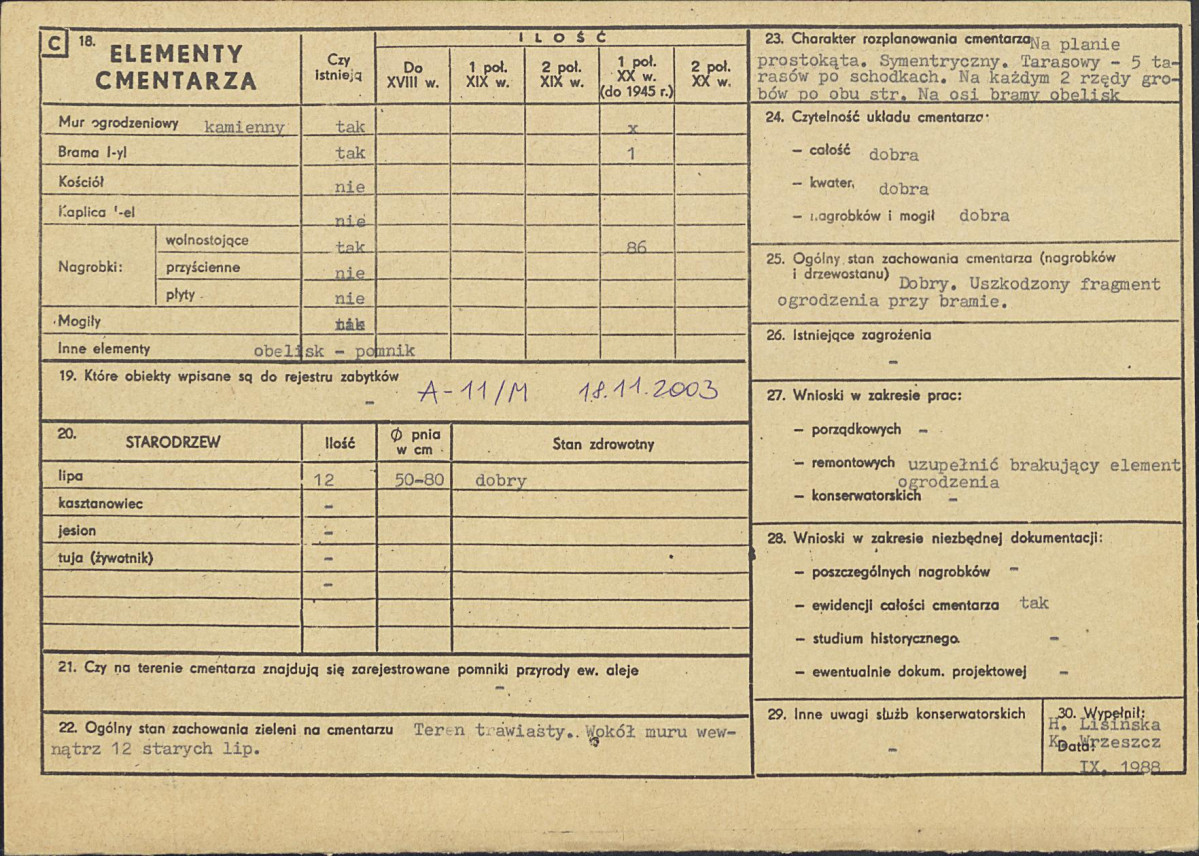 C 18. ELEMENTY CMENTARZA
Czy istnieją
ILOŚĆ
Do XVIII w.
1 poł. XIX w.
2 poł. XIX w.
1 poł. XX w. (do 1945 r.)
2 poł. XX w.
Mur ogrodzeniowy kamienny tak x
Brama I-yl tak 1
Kościół nie
Kaplica -el nie
Nagrobki: wolnostojące tak 86
przyścienne nie
płyty nie
Mogiły
Inne elementy obelisk - pomnik
19. Które obiekty wpisane są do rejestru zabytków
- A-11/M 18.11.2003
20. STARODRZEW Ilość Ø pnia w cm Stan zdrowotny
lipa 12 50-80 dobry
kasztanowiec -
jesion -
tuja (żywotnik) -
-
21. Czy na terenie cmentarza znajdują się zarejestrowane pomniki przyrody ew. aleje
-
22. Ogólny stan zachowania zieleni na cmentarzu Teren trawiasty. Wokół muru wew-
nątrz 12 starych lip.
23. Charakter rozplanowania cmentarza Na planie
prostokąta. Symentryczny. Tarasowy - 5 ta-
rasów po schodkach. Na każdym 2 rzędy gro-
bów po obu str. Na osi bramy obelisk
24. Czytelność układu cmentarza
- całość dobra
- kwater, dobra
- nagrobków i mogił dobra
25. Ogólny stan zachowania cmentarza (nagrobków
i drzewostanu) Dobry. Uszkodzony fragment
ogrodzenia przy bramie.
26. Istniejące zagrożenia
-
27. Wnioski w zakresie prac:
- porządkowych -
- remontowych uzupełnić brakujący element
ogrodzenia
- konserwatorskich -
28. Wnioski w zakresie niezbędnej dokumentacji:
- poszczególnych nagrobków -
- ewidencji całości cmentarza tak
- studium historycznego. -
- ewentualnie dokum. projektowej -
29. Inne uwagi służb konserwatorskich
-
30. Wypełnił:
H. Lisińska
K. Wrzeszcz
Data:
IX, 1988